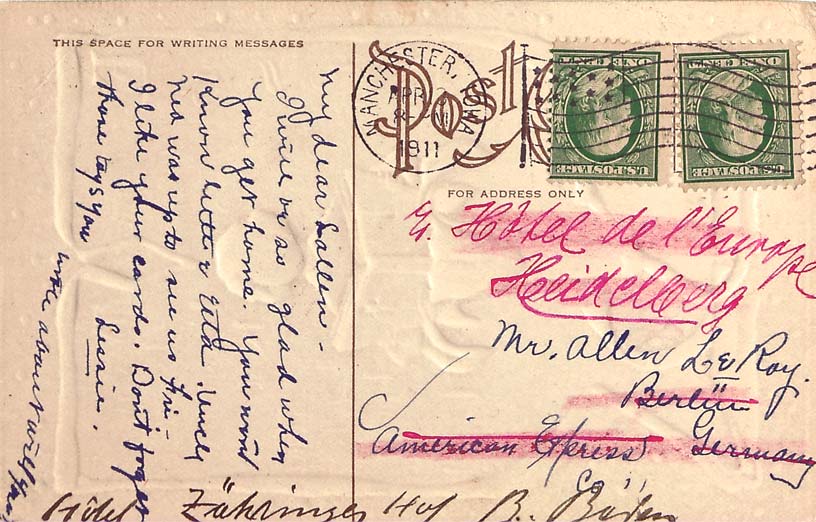 THIS SPACE FOR WRITING MESSAGES
My dear Sallen -
I will be so glad when
You get home. You wont
Know Letty & Etta. Uncle
Ned was up to see us Fri-
I like your cards. Dont forget
those toys you
wrote about
Lessie.
Post
MANCHESTER, IOWA
APR
1911
U.S. POSTAGE
ONE CENT
U.S. POSTAGE
ONE CENT
FOR ADDRESS ONLY
Hôtel de l'Europe
Heidelberg
Mr. Allen Le Roy.
Berlin
American Express Germany
Co
Hôtel Zähringer Hof B. Baden